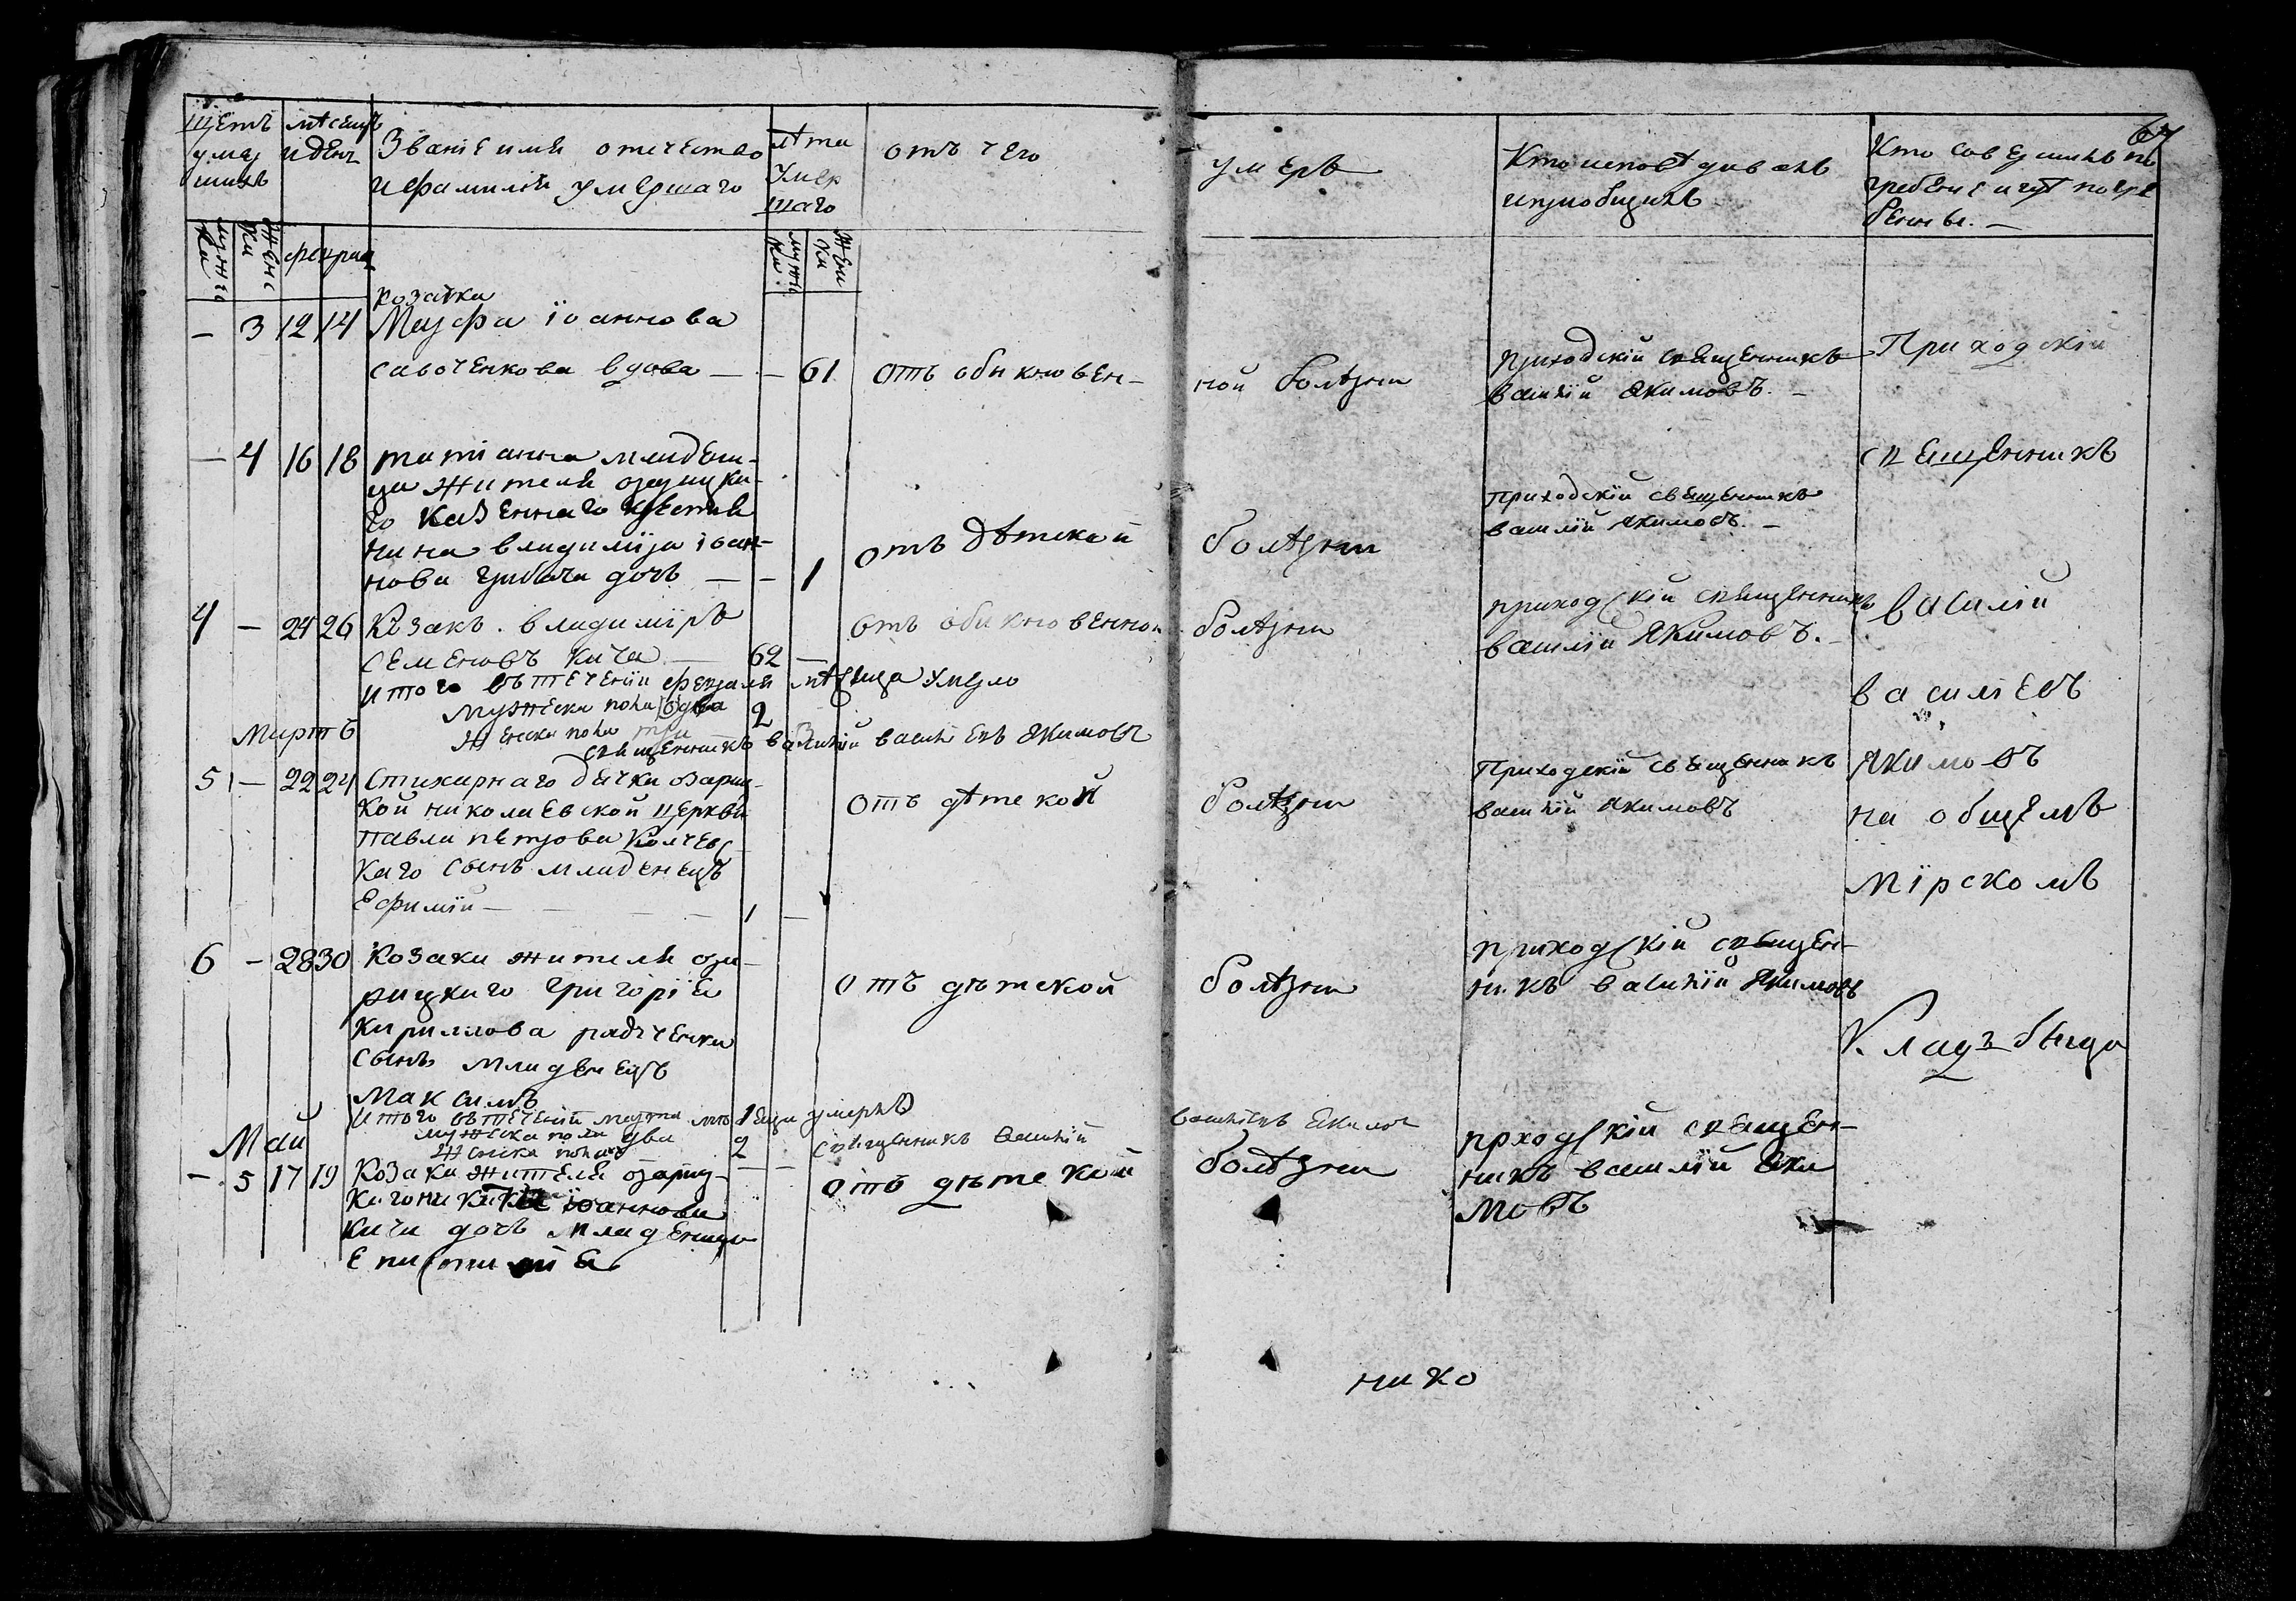 67
Щетъ умер шихъ
мѣсецъ иденъ
Званіе имя отечество
ифамилія умершаго
лѣта Умер шаго
отъ чего
умеръ
Кто исповѣдивалъ
ипріобщилъ
Кто совершилъ по
гребеніе игдѣ погре
бенны. —
мужес Ки
женс Ки
февраля
мужес Ки
жен Ки
козачка
— 3 12 14 Марфа іоаннова
савоченкова вдова — — 61 отъ обикновен-
ной болѣзни
приходскій священникъ
василій Якимовъ. —
Приходскій
— 4 16 18 татіанна младени-
ца жителя озариц ка-
го казеннаго крестья
нина владиміра іоан-
нова грибача дочъ — — 1
отъ дѣтской
болѣзни
приходскій священникъ
василій якимовъ. —
священникъ
4 — 24 26 Козакъ. владиміръ
семеновъ кича — 62 —
отъ обикновенной
болѣзни
приходскій священникъ
василій Якимовъ. —
василій
итого въ теченіи февраля мѣсяца умерло
мужеска пола два 2
женска пола три 3
священникъ василій василіевъ Якимовъ
василіевъ
Мартъ
5 — 22 24 Стихарнаго дячка озариц-
кой николаевской церкви
павла петрова
каго сынъ младенецъ
Ефимій — — — — 1 —
отъ дѣтской
болѣзни
Приходскій священникъ
василій якимовъ
Якимовъ
на общемъ
мірскомъ
6 — 28 30 Козака жителя оза-
рицкаго григорія
кириллова радченка
сынъ младенецъ
Максимъ
отъ дѣтской
болѣзни
приходскій священ-
никъ василій Якимовъ
Кладъбищи
итого въ теченіи марта мѣсяца умерло
мужеска пола два 2
женска пола
священникъ василій
василіевъ Якимов
Май
— 5 17 19 Козака жителя озариц-
каго никити іоаннова
кичи дочъ младеница
Епистимія
— —
отъ дѣтской
болѣзни
прходскій священ-
никъ василій Яки
мовъ
нико